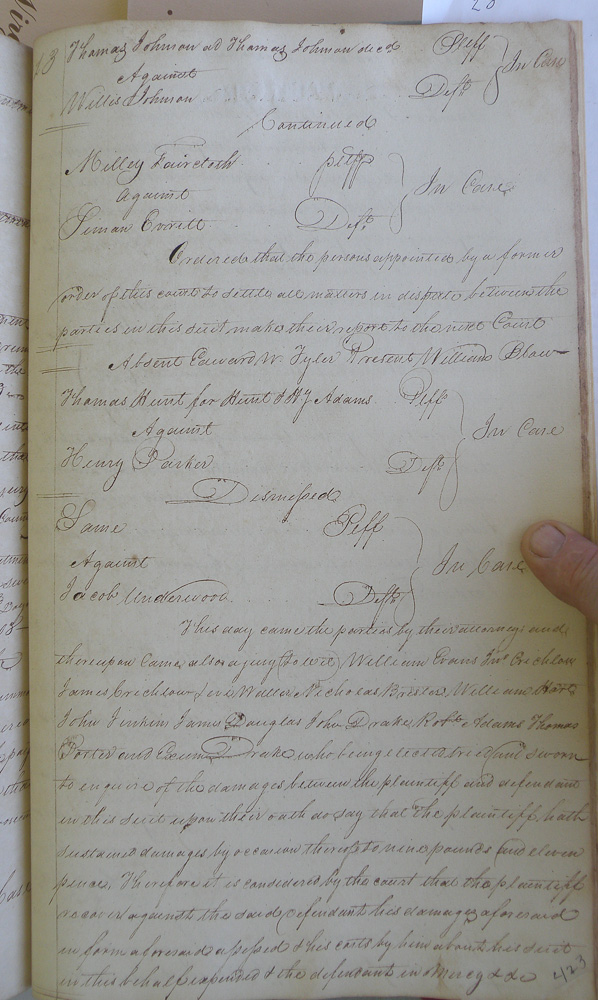 Thomas Johnson ad Thomas Johnson decd Plff In Case
Against
Willis Johnson Deft
Continued
Milley Faircloth pltff In Case
Against
Siman Everitt Deft
Ordered that the persons appointed by a former
order of this court to settle all matters in dispute between the
parties in this suit make their report to the next Court
Absent Edward W. Tyler Present William Blow
Thomas Hunt for Hunt & Adams Plff In Case
Against
Henry Parker Deft
Dismissed
Same Plff In Case
Against
Jacob Underwood Deft
This day came the parties by their attorneys and
thereupon Came also a jury (to wit) William Evans Jno Crichlow
James Crichlow Waller Nicholas William Hart
John Jenkins James Douglas John Drake Robt Adams Thomas
Porter and Exum Drake who being elected tried and sworn
to enquire of the damages between the plaintiff and defendant
in this suit upon their oath do say that the plaintiff hath
sustained damages by occasion thereof to nine pounds and eleven
pence, Therefore it is considered by the court that the plaintiff
recover against the said defendant his damages aforesaid
in form aforesaid assessed & his costs by him about his suit
in this behalf expended & the defendant in Mercy & c
423